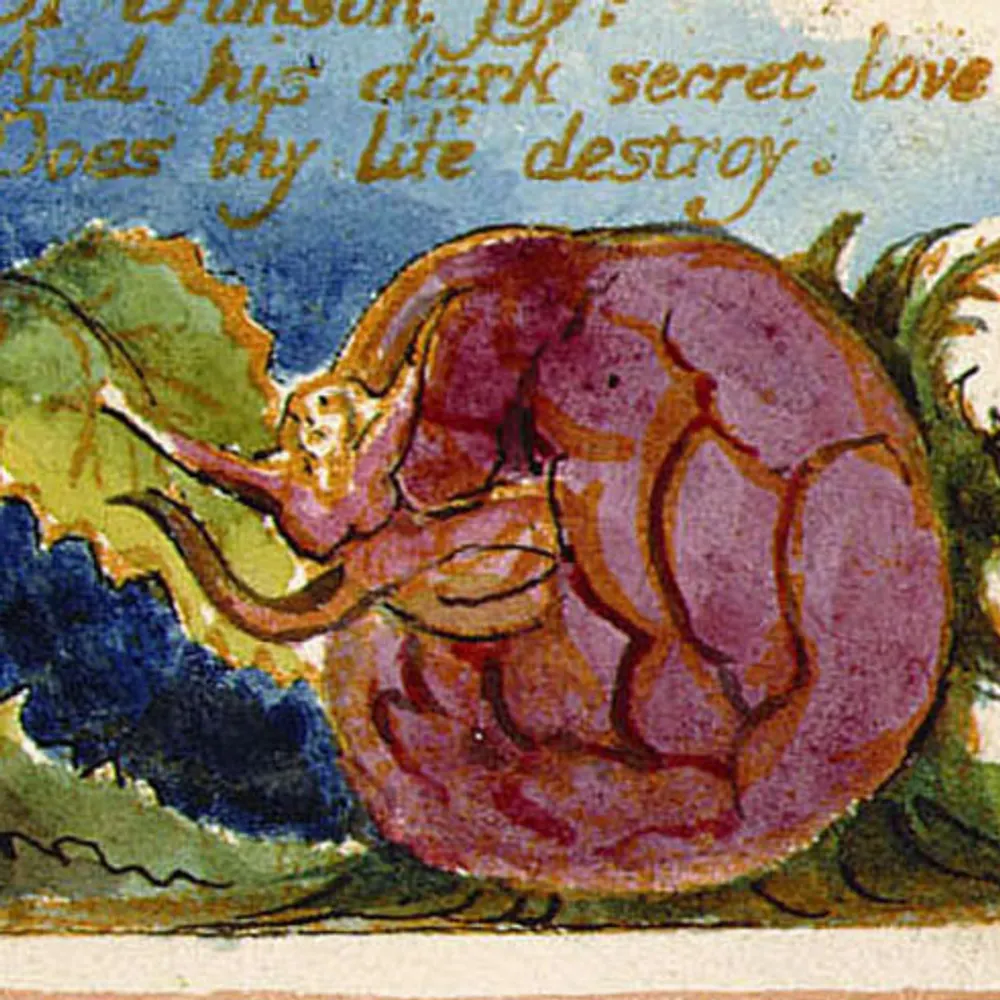 Of crimson joy:
And his dark secret love
Does thy life destroy.